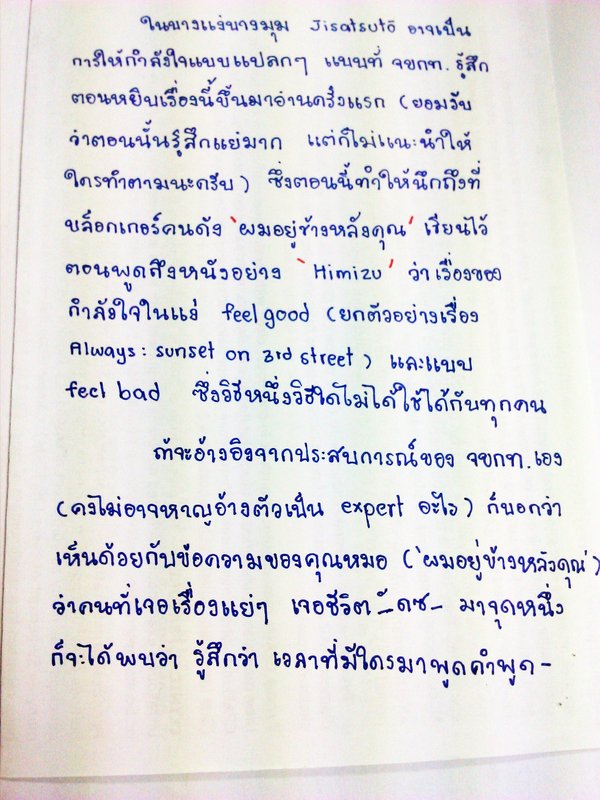 ในบางแง่บางมุม Jisatsutō อาจเป็น
การให้กำลังใจแบบแปลกๆ แบบที่ จขกท. รู้สึก
ตอนหยิบเรื่องนี้ขึ้นมาอ่านครั้งแรก (ยอมรับ
ว่าตอนนั้นรู้สึกแย่มาก แต่ก็ไม่แนะนำให้
ใครทำตามนะครับ) ซึ่งตอนนี้ทำให้นึกถึงที่
บล็อกเกอร์คนดัง 'ผมอยู่ข้างหลังคุณ' เขียนไว้
ตอนพูดถึงหนังอย่าง 'Himizu' ว่าเรื่องของ
กำลังใจในแง่ feel good (ยกตัวอย่างเรื่อง
Always: sunset on 3rd street) และแบบ
feel bad ซึ่งวิธีหนึ่งวิธีใดไม่ได้ใช้ได้กับทุกคน
ถ้าจะอ้างอิงจากประสบการณ์ของ จขกท. เอง
(คงไม่อาจหาญอ้างตัวเป็น expert อะไร) ก็บอกว่า
เห็นด้วยกับข้อความของคุณหมอ ('ผมอยู่ข้างหลังคุณ')
ว่าคนที่เจอเรื่องแย่ๆ เจอชีวิต มาจุดหนึ่ง
ก็จะได้พบว่า รู้สึกว่า เวลาที่มีใครมาพูดคำพูด-